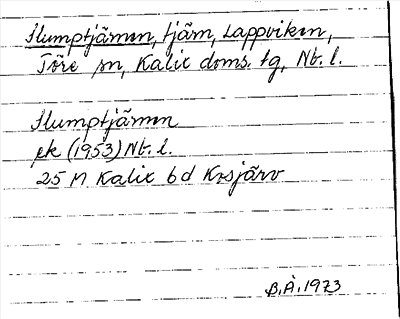 Slumptjärnen, tjärn, Lappviken,
Töre sn, Kalix doms. tg, Nb. l.
Slumptjärnen
ek (1953) Nb. l.
25 M Kalix 6d Korsjärv
B.Å. 1973